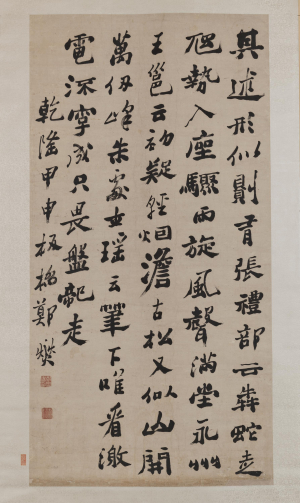 其述形似則有張禮部云犇蛇走
虺勢入座驟雨旋風聲滿堂永州
王邕云初疑輕烟澹古松又似山開
萬仞峰朱處士瑶云筆下唯看激
電流字成只畏盤龍走
乾隆甲申板橋鄭燮